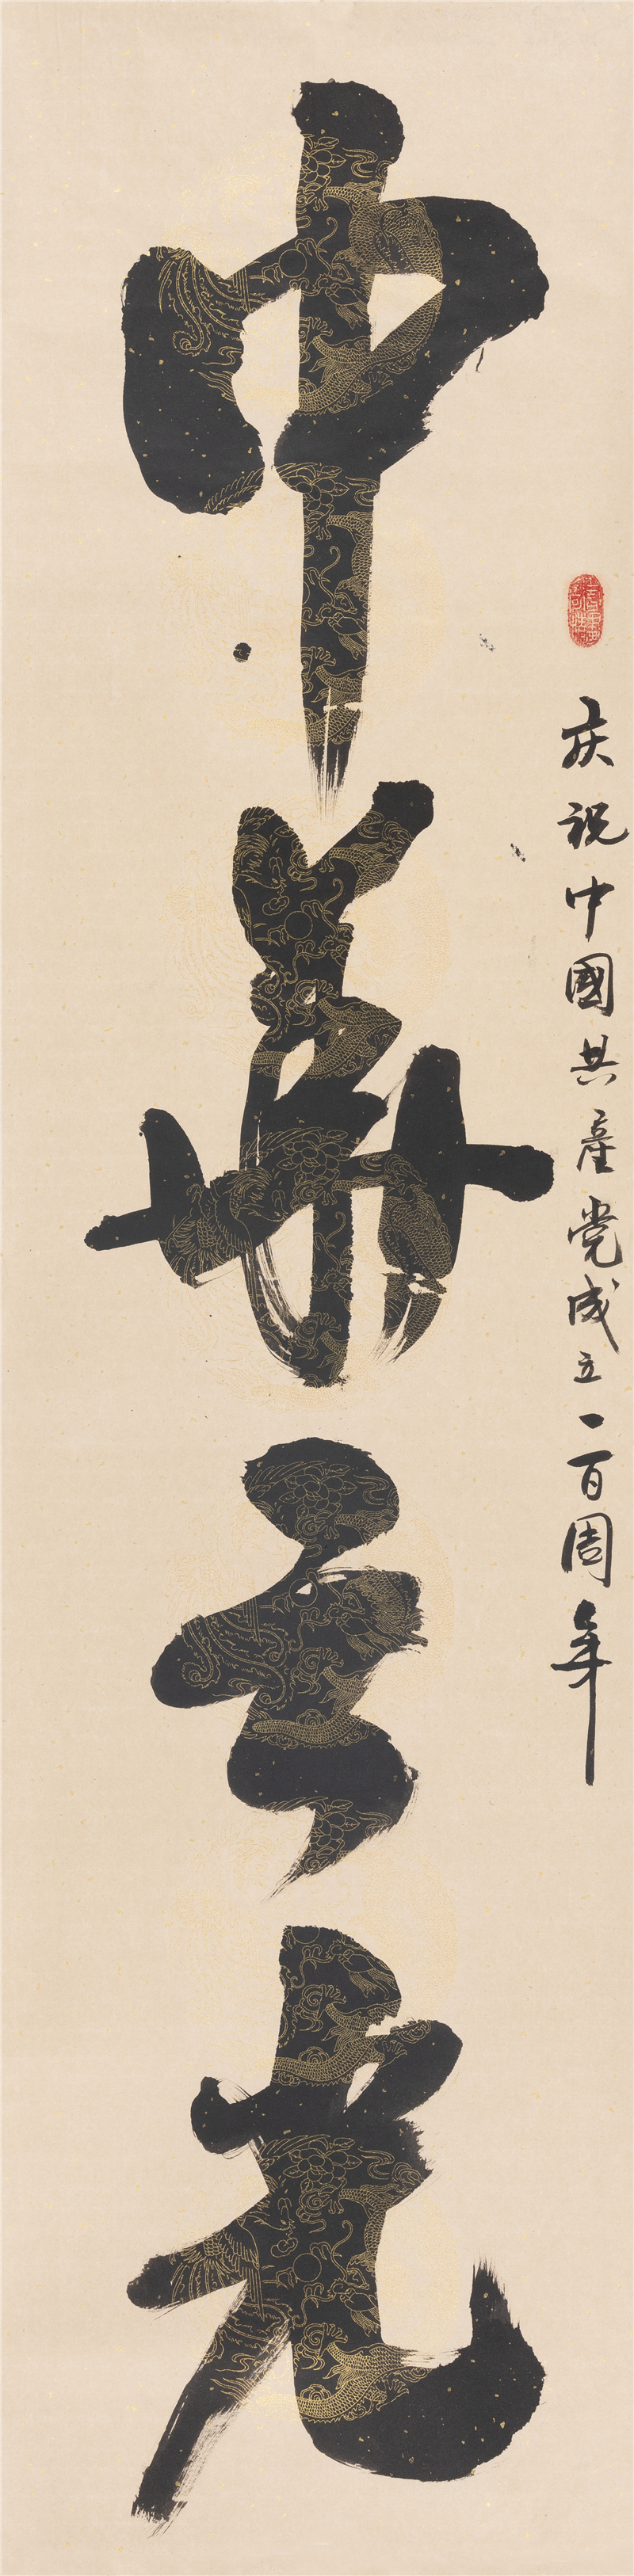 庆祝中國共産党成立一百周年
中華之光